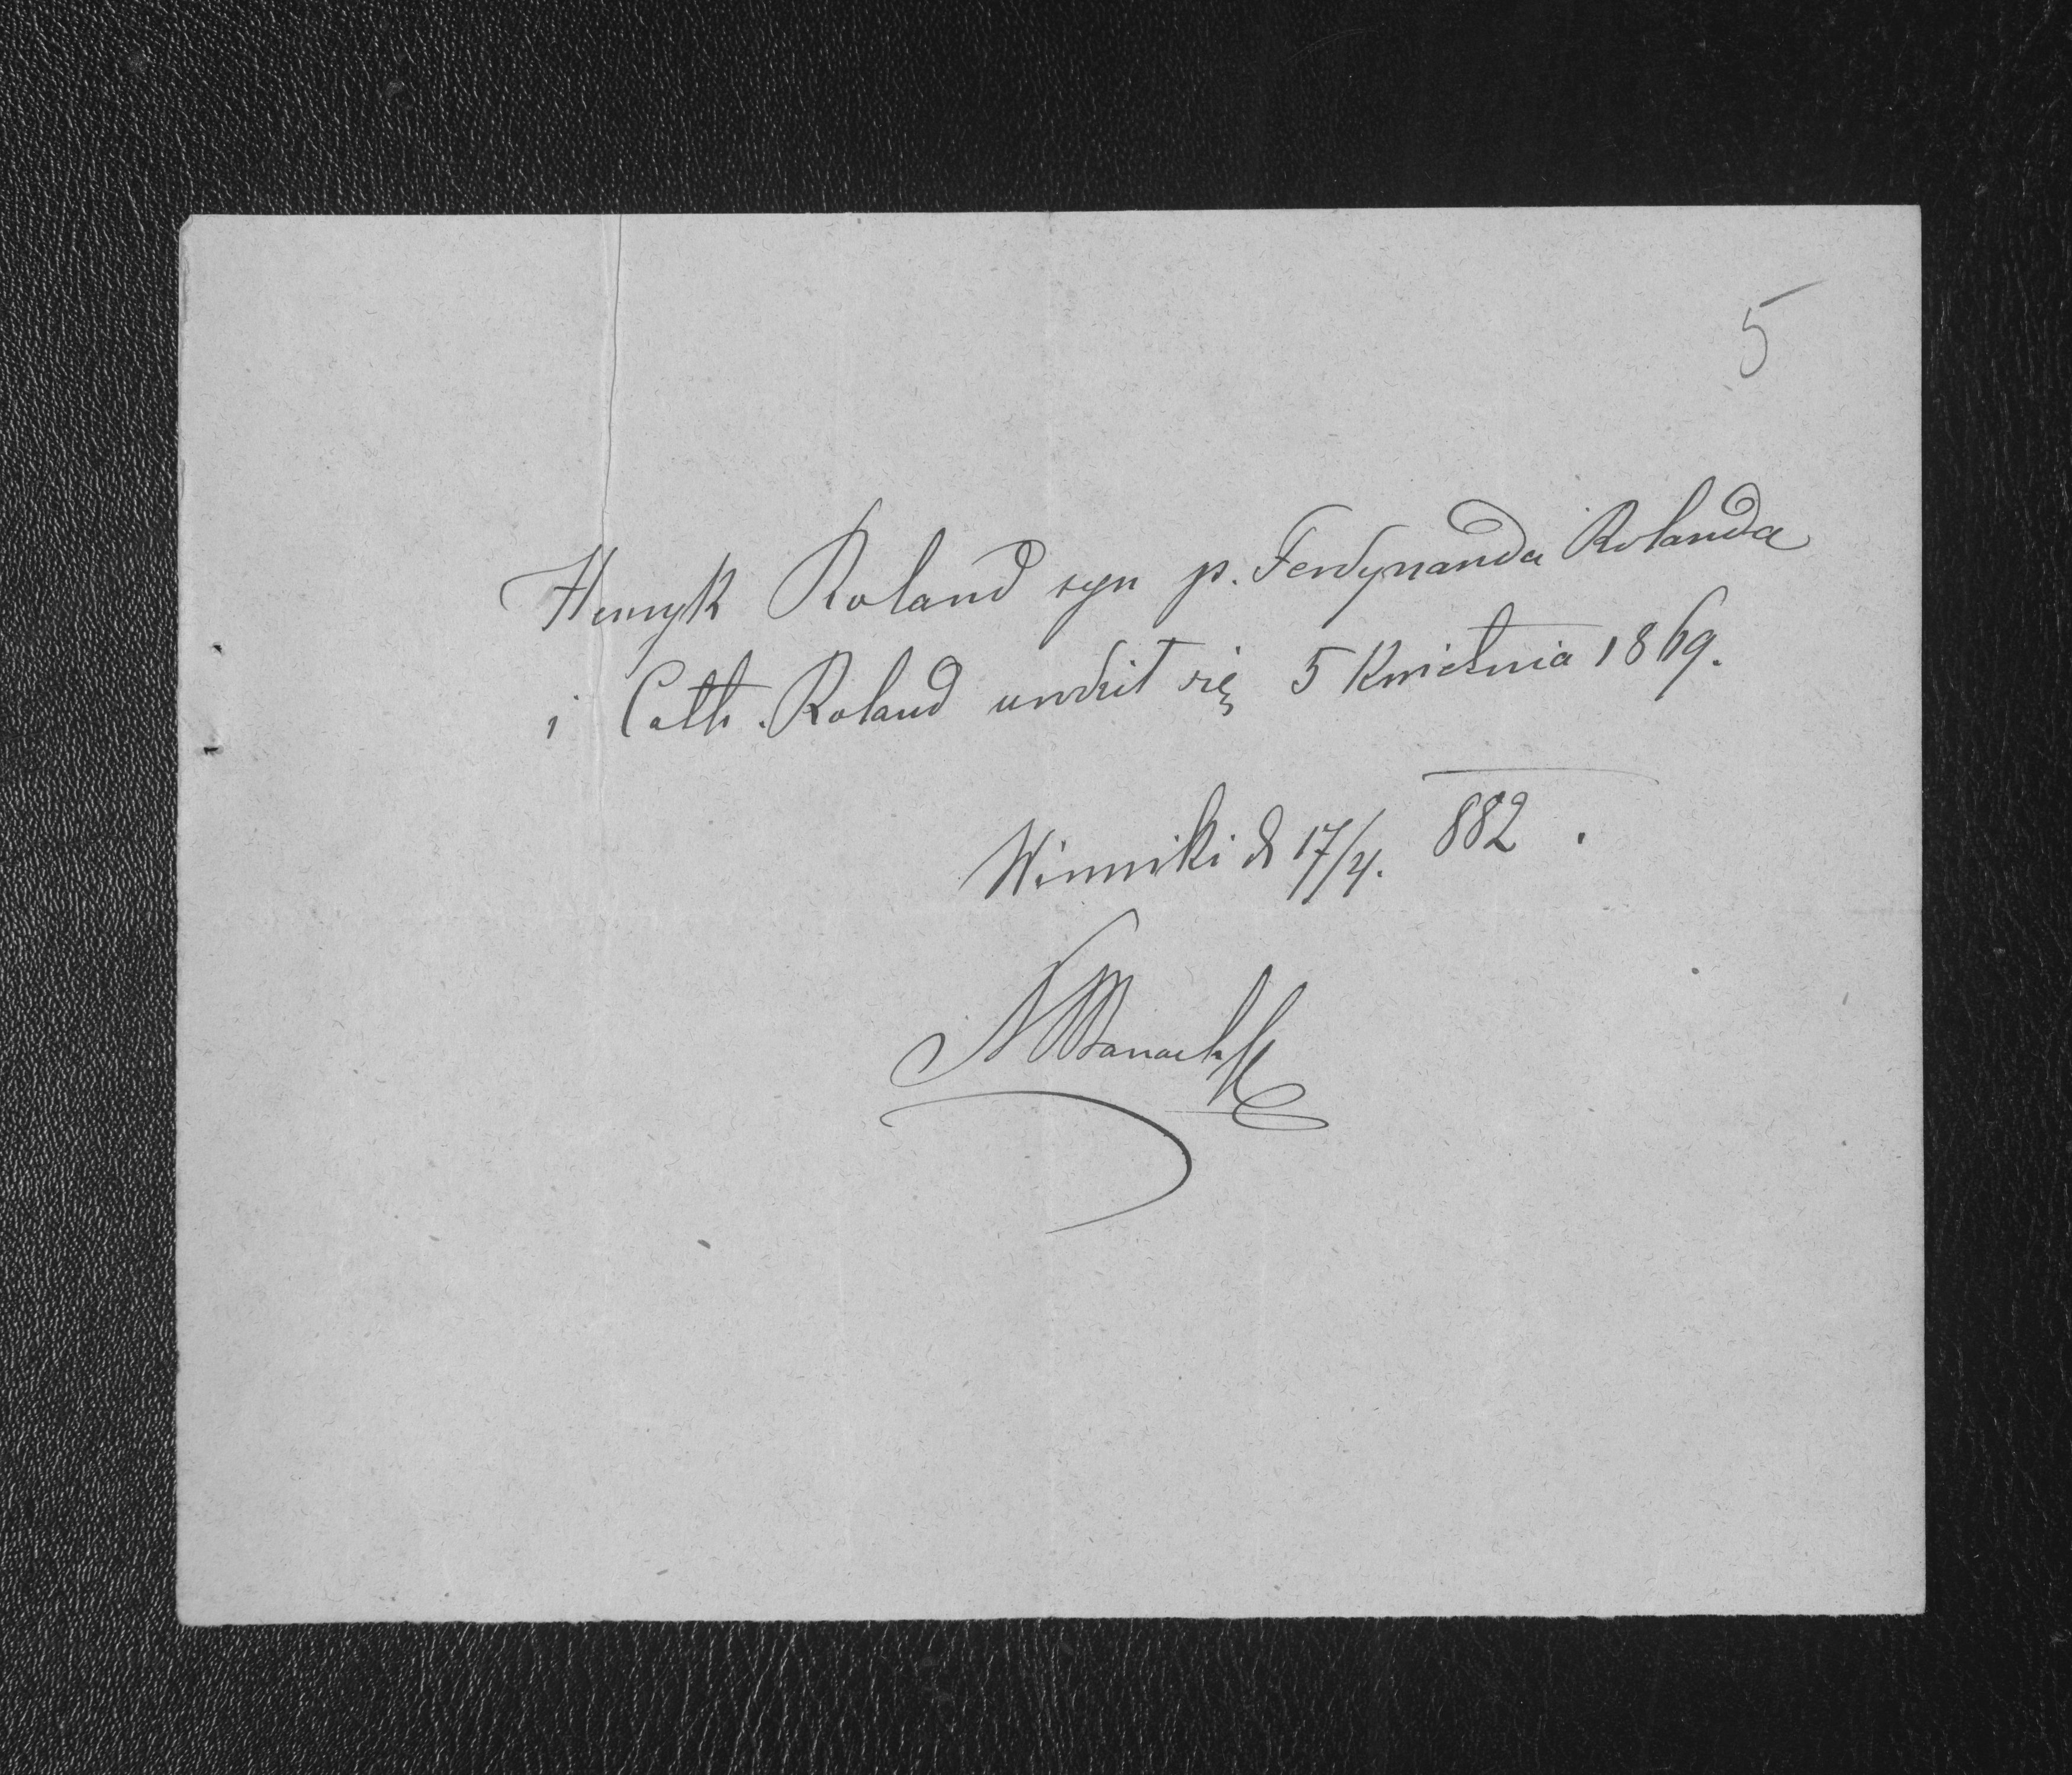 5
Henryk Roland syn p. Ferdynanda Rolanda
i Cath. Roland urodził się 5 Kwietnia 1869.
Winniki d 17/4. 882.